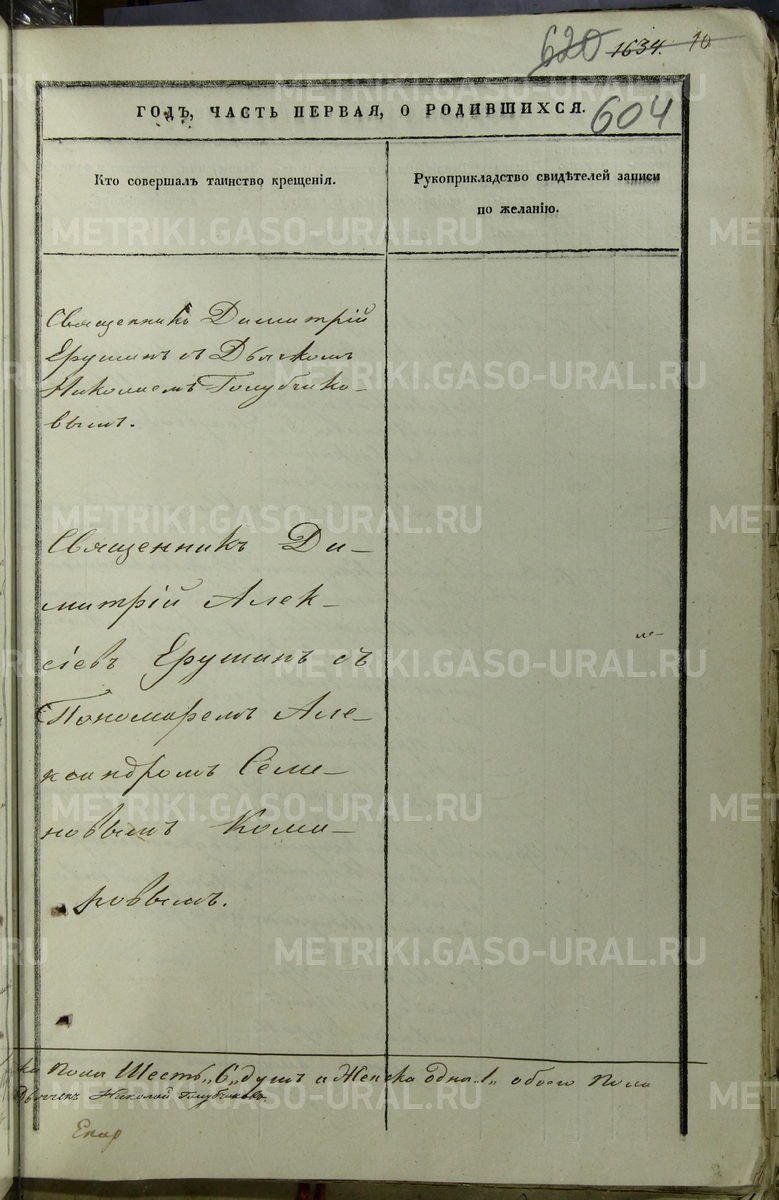 620 1634. 10
ГОДЪ, ЧАСТЬ ПЕРВАЯ, О РОДИВШИХСЯ. 604
Кто совершалъ таинство крещенія.
Рукоприкладство свидѣтелей записи
по желанію.
Священникъ Димитрій
Ерушинъ съ Дьячкомъ
Николаемъ Голубчико-
вымъ.
Священникъ Ди-
митрій Алек-
сіевъ Ерушинъ съ
Пономаремъ Але-
ксандромъ Семе-
новымъ Кома-
ровымъ.
ка пола Шесть „6„ душъ а Женска одна „1„ обоего пола
Дьячекъ Николай Голубчиковъ
METRIKI.GASO-URAL.RU